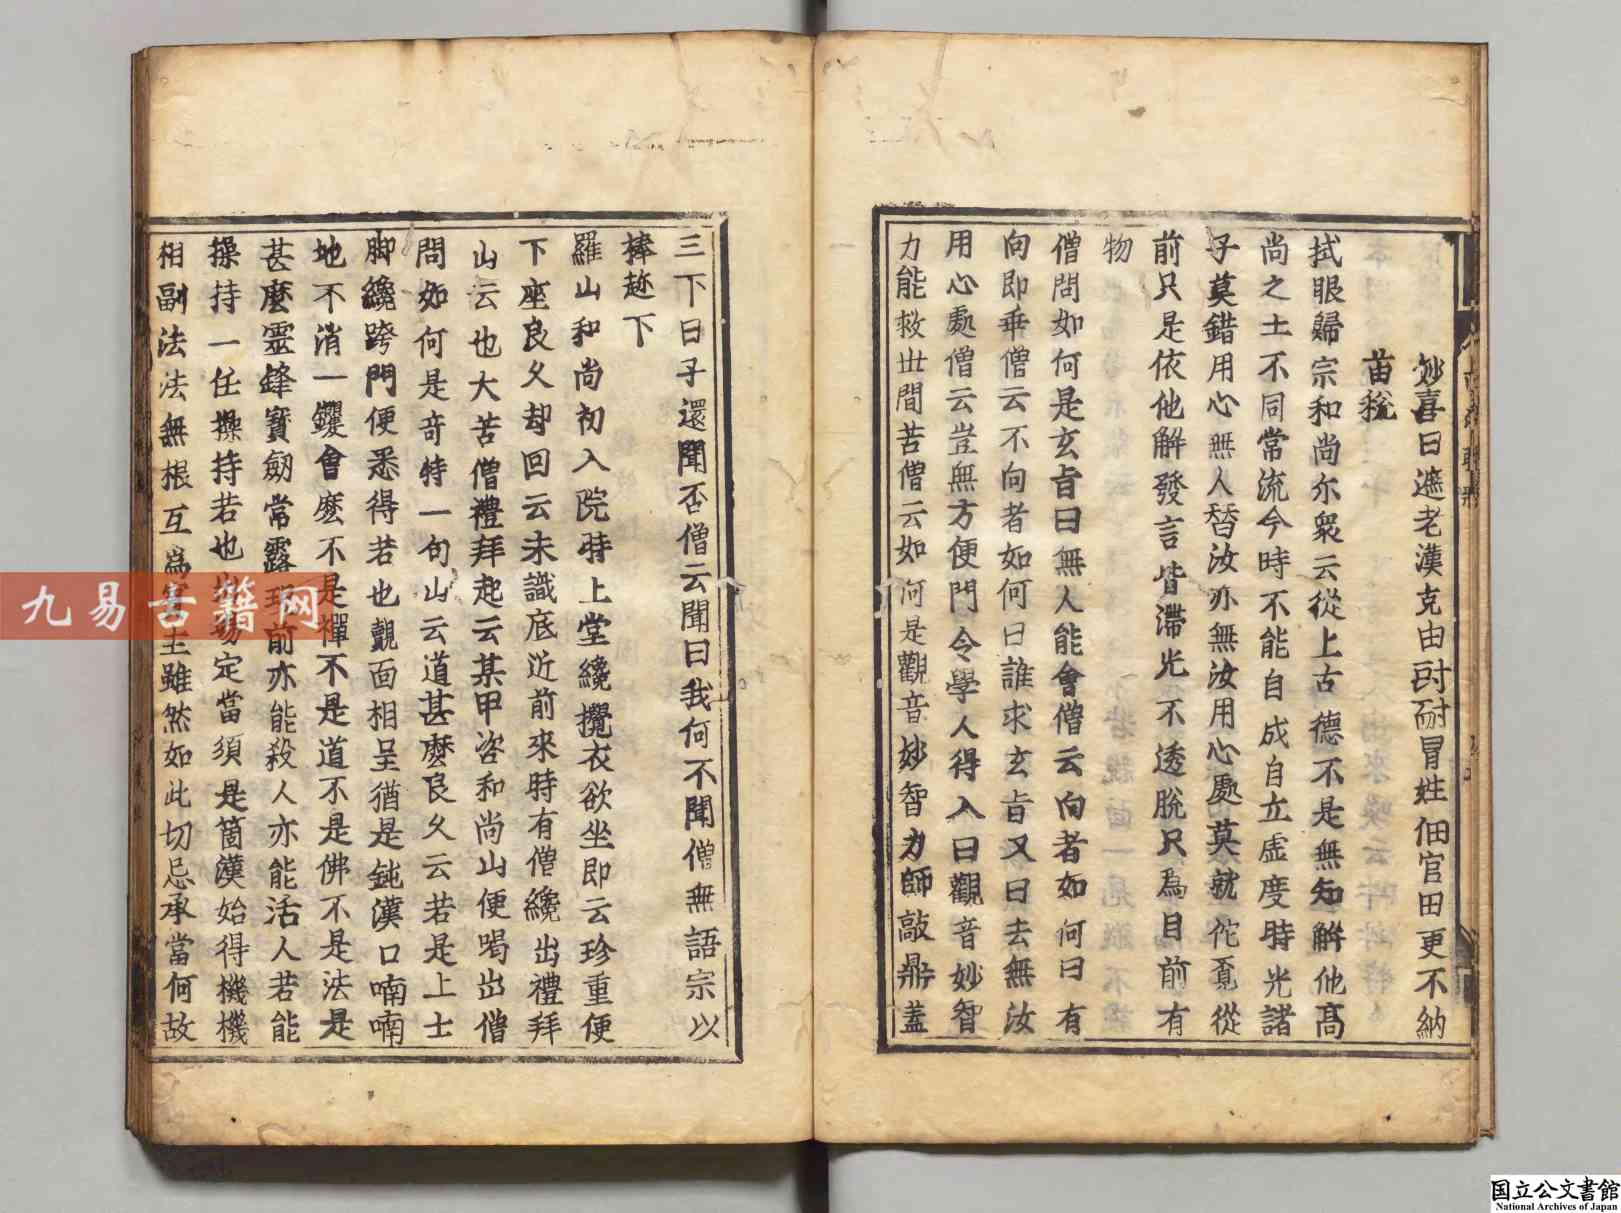 妙喜曰遮老漢克由尀耐冒姓佃官田更不納
苗稅
拭眼歸宗和尚尒衆云從上古德不是無知解他髙
尚之士不同常流今時不能自成自立虛度時光諸
子莫錯用心無人替汝亦無汝用心處莫就佗覔從
前只是依他解發言皆滯光不透脫只為目前有
物
僧問如何是玄旨曰無人能會僧云向者如何曰有
向即乖僧云不向者如何曰誰求玄旨又曰去無汝
用心處僧云豈無方便門令學人得入曰觀音妙智
力能救世間苦僧云如何是觀音妙智力師敲鼎蓋
三下曰子還聞否僧云聞曰我何不聞僧無語宗以
棒趂下
羅山和尚初入院時上堂纔攪衣欲坐即云珍重便
下座良久却回云未識底近前來時有僧纔出禮拜
山云也大苦僧禮拜起云某甲咨和尚山便喝出僧
問如何是奇特一句山云道甚麽良久云若是上士
脚纔跨門便悉得若也覿面相呈猶是鈍漢口喃喃
地不消一钁會麽不是禪不是道不是佛不是法是
甚麽靈鋒寶劒常露現前亦能殺人亦能活人若能
操持一任操持若也定當須是箇漢始得機機
相副法法無根互為主雖然如此切忌承當何故
九易古籍网
国立公文書館
National Archives of Japan